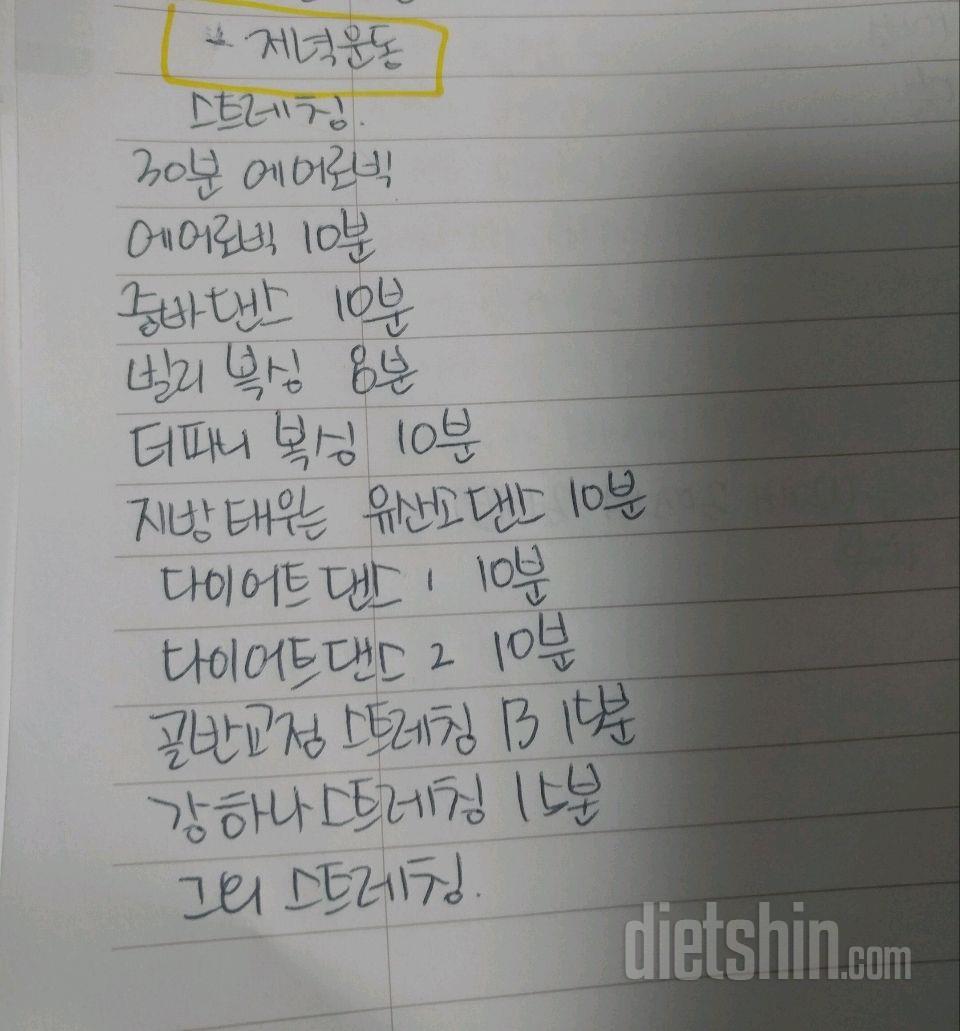 * 저녁운동
스트레칭.
30분 에어로빅
에어로빅 10분
줌바댄스 10분
빌리 복싱 8분
더파니 복싱 10분
지방태우는 유산소댄스 10분
다이어트댄스 1 10분
다이어트댄스 2 10분
골반교정 스트레칭 13 15분
강하나스트레칭 15분
그외 스트레칭.
dietshin.com